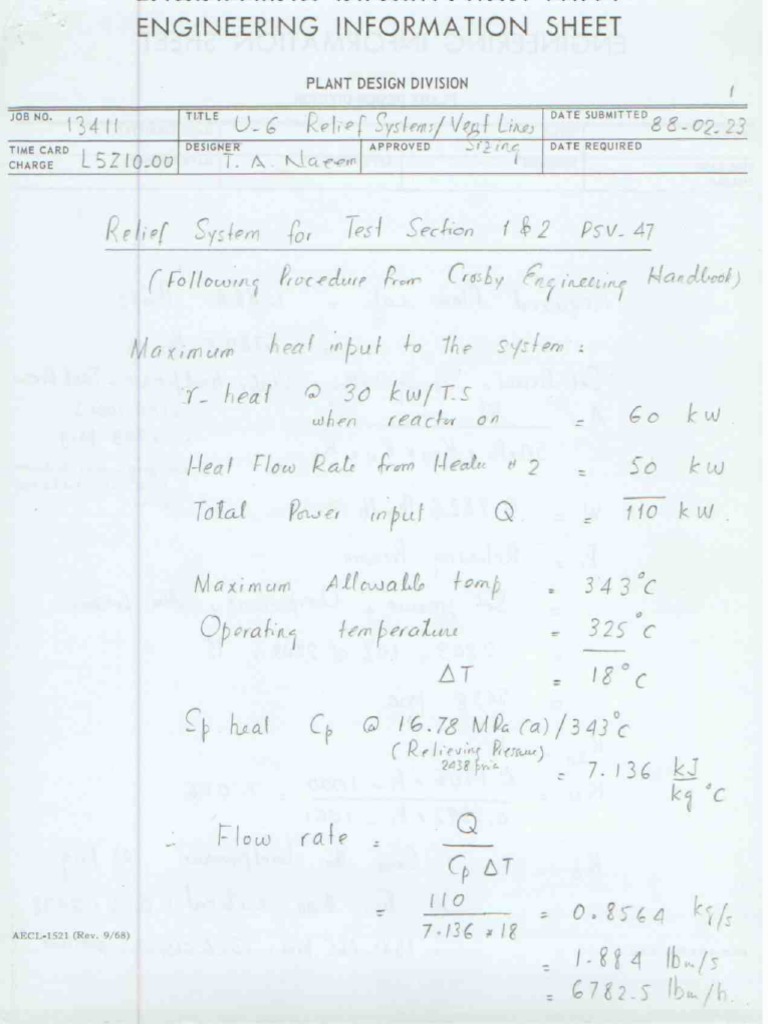 ENGINEERING INFORMATION SHEET
PLANT DESIGN DIVISION
1
JOB NO. 13411 TITLE U-6 Relief Systems/Vent Lines Sizing DATE SUBMITTED 88-02-23
TIME CARD CHARGE L5Z10-00 DESIGNER T. A. Naeem APPROVED DATE REQUIRED
Relief System for Test Section 1 & 2 PSV-47
(Following Procedure from Crosby Engineering Handbook)
Maximum heat input to the system :
γ- heat @ 30 kW/T.S
when reactor on = 60 kW
Heat Flow Rate from Heater #2 = 50 kW
Total Power input Q = 110 kW.
Maximum Allowable temp = 343°C
Operating temperature = 325°C
ΔT = 18°C
Sp heat Cp @ 16.78 MPa(a)/343°C
(Relieving Pressure)
2438 psia
= 7.136 kJ/kg °C
∴ Flow rate = Q / Cp ΔT
= 110 / 7.136 * 18 = 0.8564 kg/s
= 1.884 lbm/s
= 6782.5 lbm/h.
AECL-1521 (Rev. 9/68)